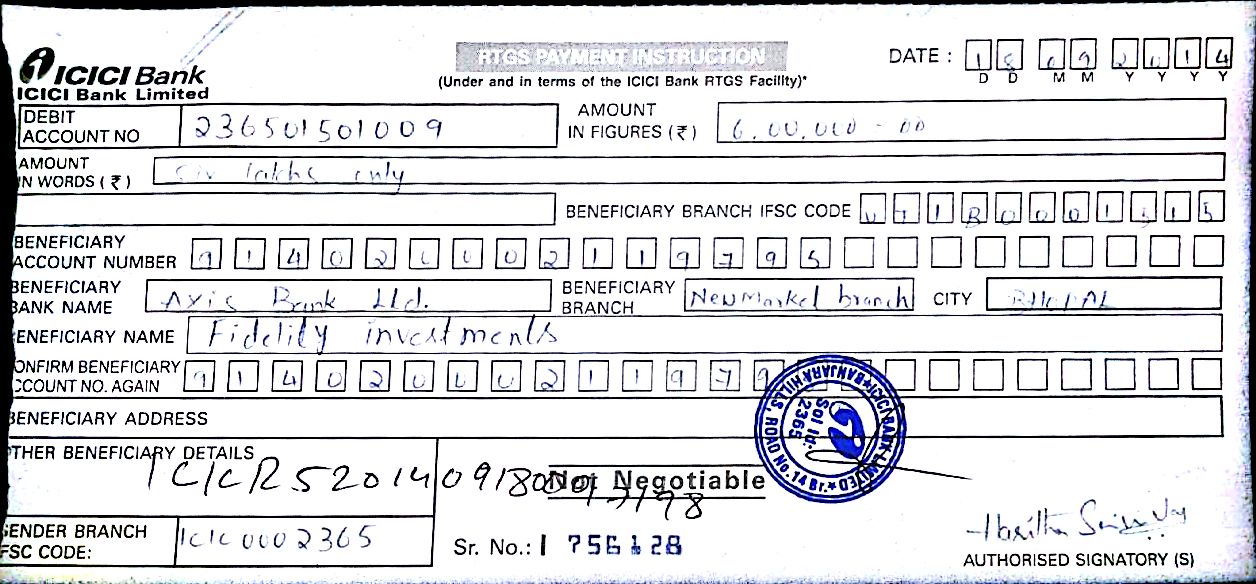 ICICI Bank
ICICI Bank Limited
RTGS PAYMENT INSTRUCTION
(Under and in terms of the ICICI Bank RTGS Facility)*
DATE : 18 09 2014
D D M M Y Y Y Y
DEBIT ACCOUNT NO 236501501009
AMOUNT IN FIGURES (₹) 6,00,000 - 00
AMOUNT IN WORDS (₹) Six lakhs only
BENEFICIARY BRANCH IFSC CODE UTIB0001515
BENEFICIARY ACCOUNT NUMBER 914020002119795
BENEFICIARY BANK NAME Axis Bank Ltd.
BENEFICIARY BRANCH New Market branch
CITY BHOPAL
BENEFICIARY NAME Fidelity investments
CONFIRM BENEFICIARY ACCOUNT NO. AGAIN 91402000211979
BENEFICIARY ADDRESS
OTHER BENEFICIARY DETAILS
ICICR52014091800
Not Negotiable
SENDER BRANCH IFSC CODE: ICIC0002365
Sr. No.: I 756128
ICICI BANK LIMITED
BANJARA HILLS, ROAD No. 14 Br.
Sol Id: 2365
AUTHORISED SIGNATORY (S)